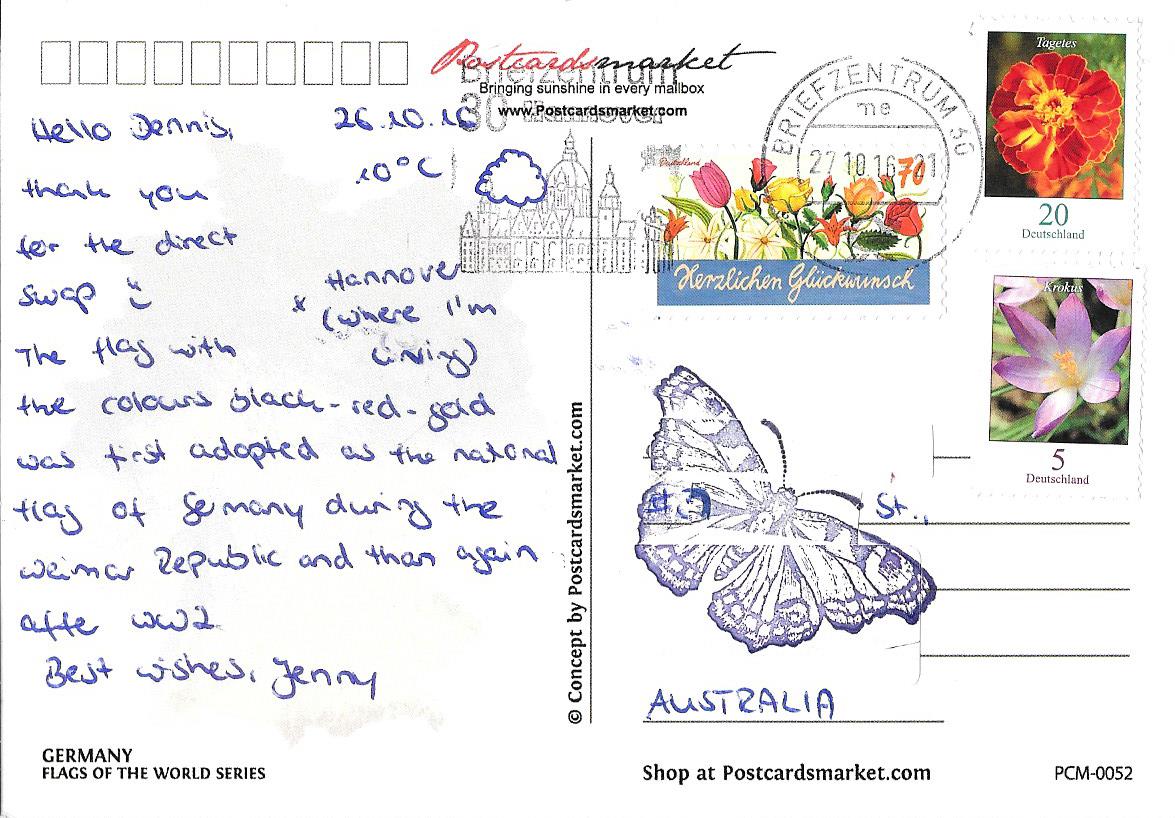 Postcardsmarket
Briefzentrum
Bringing sunshine in every mailbox
30 Hannover
www.Postcardsmarket.com
Hello Dennis,
26.10.16
10°C
thank you
for the direct
swap
* Hannover
(where I'm
living)
The flag with
the colours black-red-gold
was first adopted as the national
flag of Germany during the
weimar Republic and than again
afte WW2.
Best wishes, Jenny
GERMANY
FLAGS OF THE WORLD SERIES
© Concept by Postcardsmarket.com
BRIEFZENTRUM 30
me
27.10.16-21
Deutschland
70
Herzlichen Glückwunsch
Tagetes
20
Deutschland
Krokus
5
Deutschland
St.,
AUSTRALIA
Shop at Postcardsmarket.com
PCM-0052